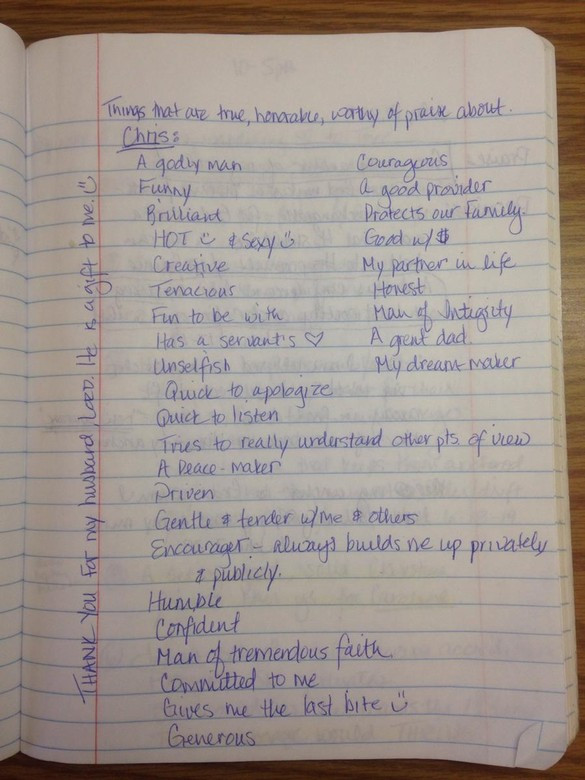 Things that are true, honorable, worthy of praise about.
Chris:
A godly man
Funny
Brilliant
HOT ☺ & Sexy ☺
Creative
Tenacious
Fun to be with
Has a servant's ♡
Unselfish
Quick to apologize
Quick to listen
Tries to really understand other pts. of view
A Peace-maker
Driven
Gentle & tender w/me & others
Encourager - always builds me up privately
& publicly.
Humble
Confident
Man of tremendous faith
Committed to me
Gives me the last bite ☺
Generous
Courageous
a good provider
Protects our family.
Good w/ $
My partner in life
Honest
Man of Integrity
A great dad.
My dream-maker
THANK YOU for my husband Lord. He is a gift to me. ☺